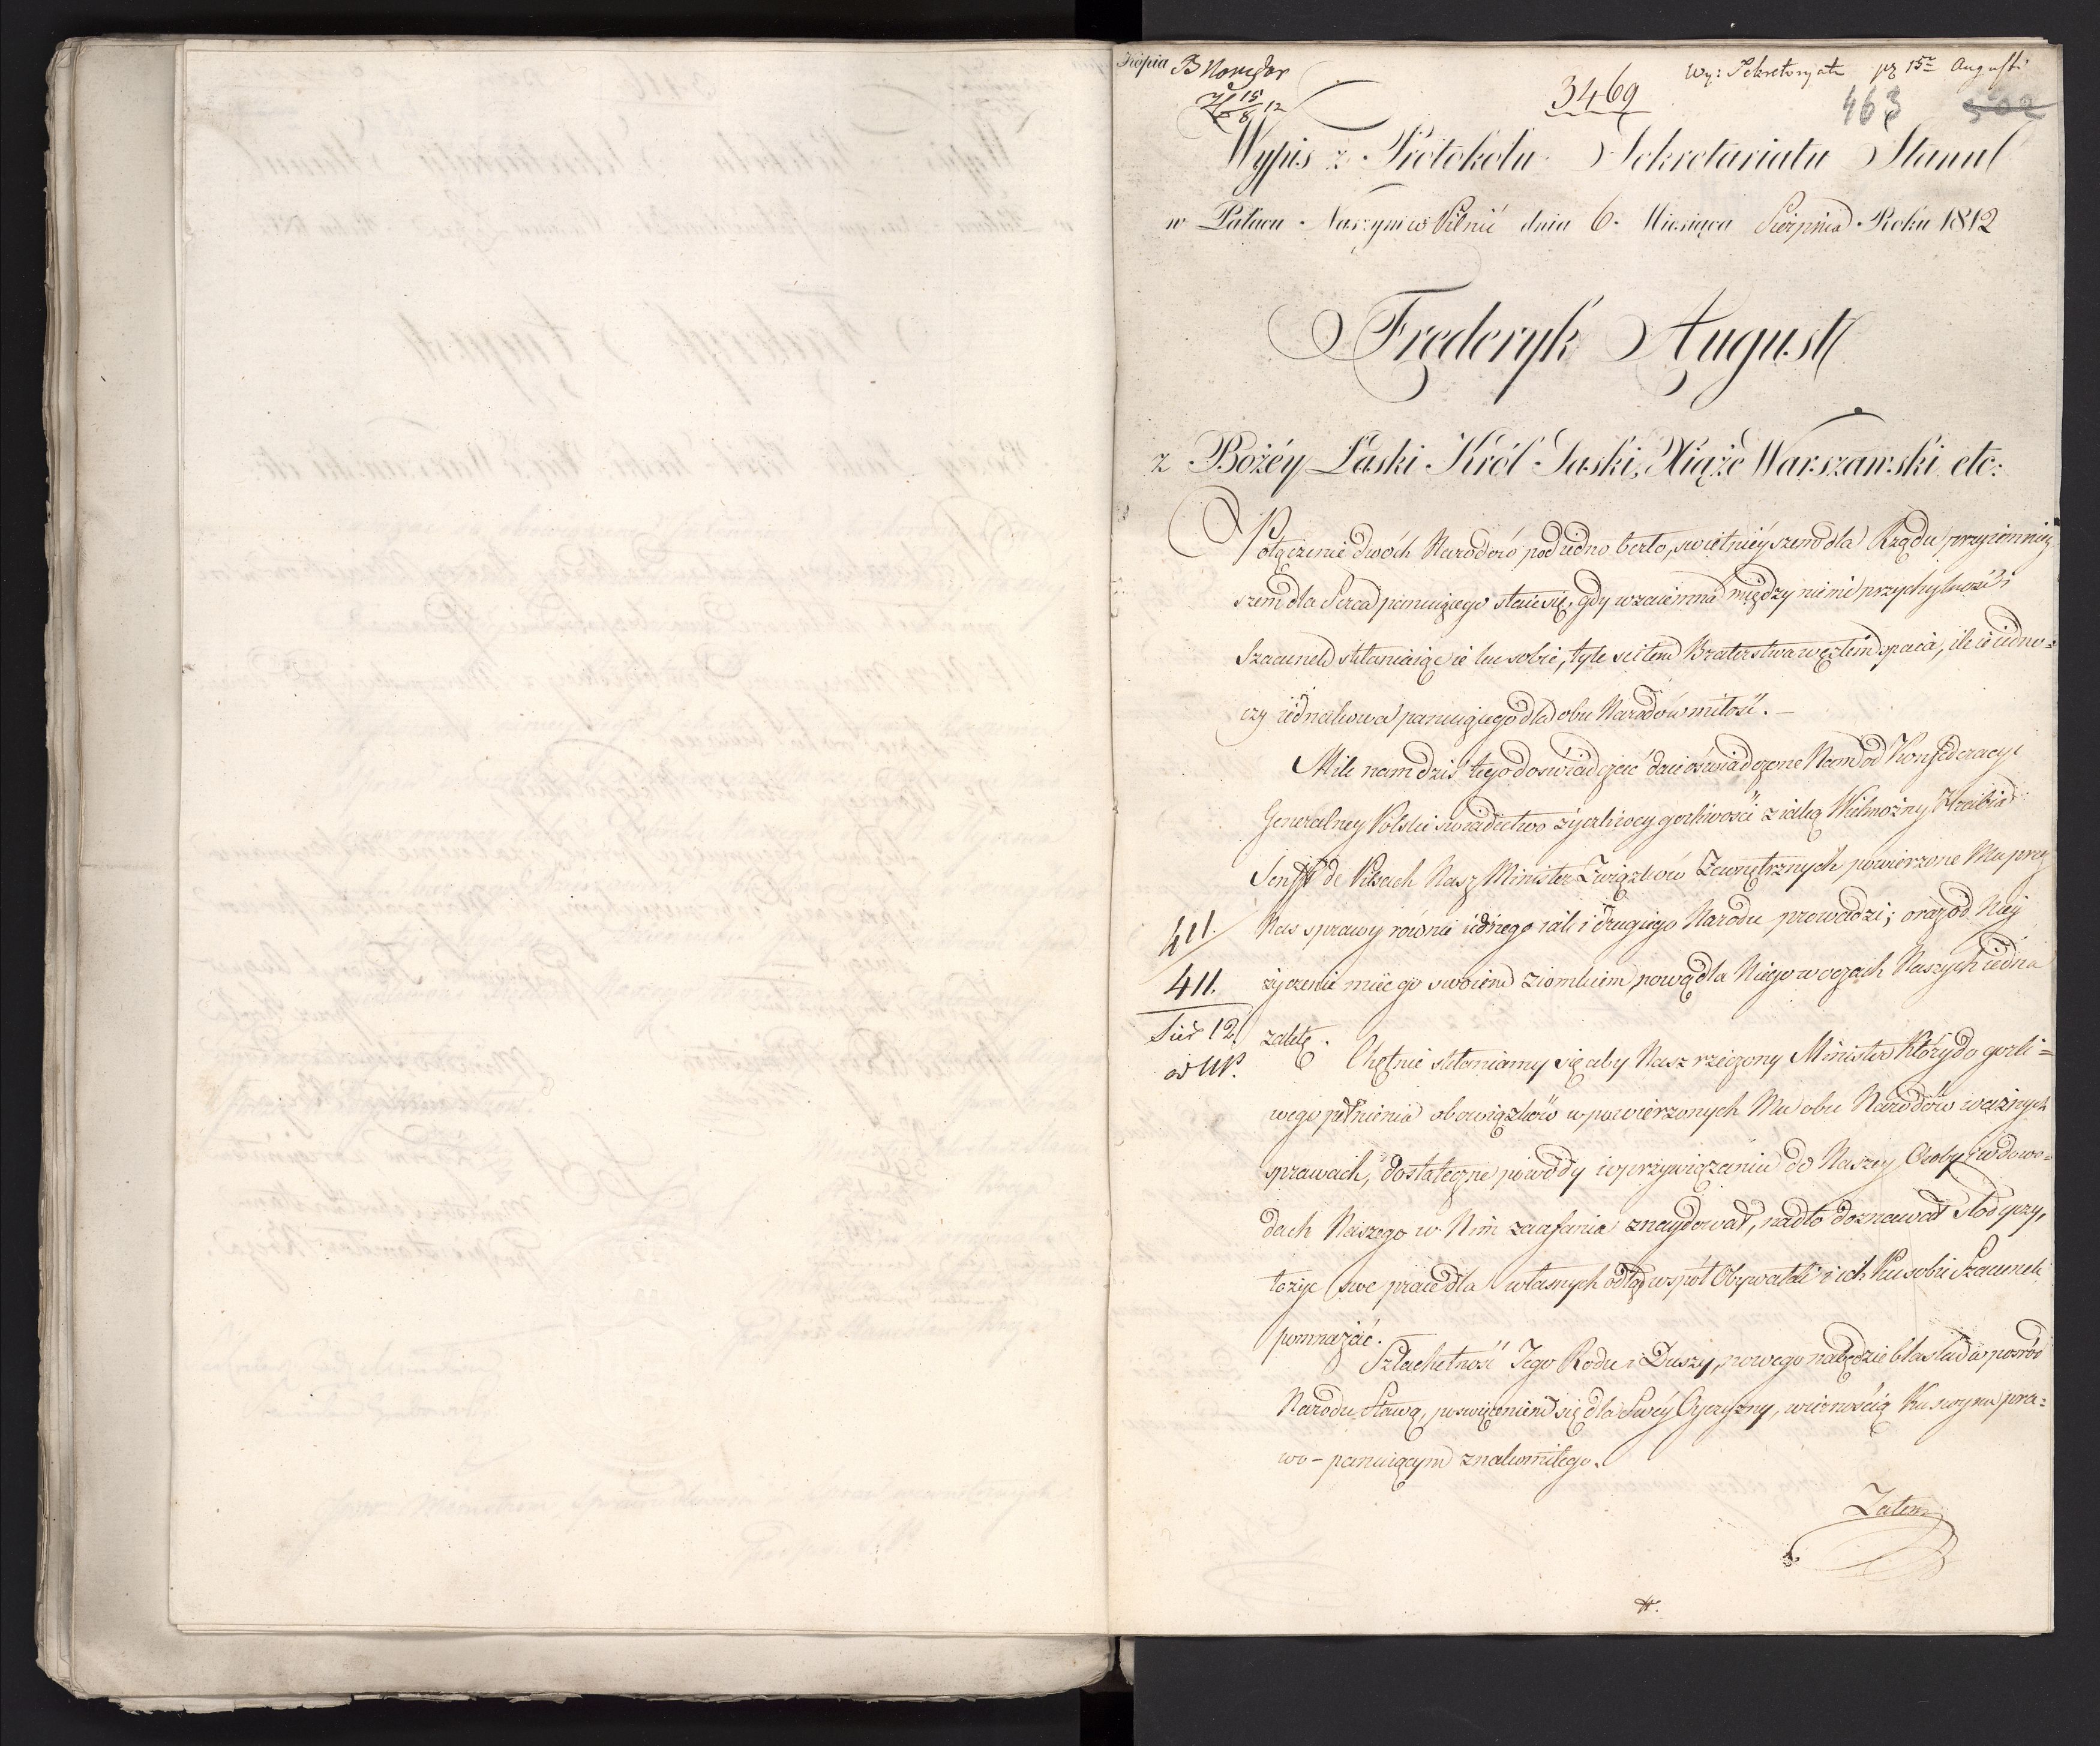 Kopia
3469
Wy: Sekretoryatu pz 15ta Augusti
463 502
15/8 12
Wypis z Protokołu Sekretariatu Stanu
w Pałacu Naszym w Pilnić dnia 6. Miesiąca Sierpnia Roku 1812
Frederyk August
z Bożéy Łaski Król Saski, Xiąże Warszawski etc:
Połączenie dwóch Narodów pod iedno berło, swietnieyszem dla Rządu przyiemniey
szem dla Serca panuiącego staie się, gdy wzaiemna między niemi przychylność i
Szacunek skłaniaiąc ie ku sobie, tyle ścisłem Braterstwa węzłem spaia, ile ie iedno=
czy iednakowa panuiącego dla obu Narodów miłość. —
Mile nam dziś tego doswiadczać daie oświadczone Nam od Konfederacyi
Generalney Polskie swiadectwo życzliwey gorliwości z iaką Wielmożny Hrabia
Senfft de Pilsach Nasz Minister Związków Zewnętrznych, powierzone Mu przy
Nas sprawy równie iednego iak i drugiego Narodu prowadzi; oraz od Niey
411.
życzenie mieć go swoiem ziomkiem, nową dla Niego w oczach Naszych iedna
411.
Sier 12
zaletę.
Chętnie skłaniamy się aby Nasz rzeczony Minister który do gorli=
wego pełnienia obowiązków w powierzonych Mu obu Narodów ważnych
sprawach, dostateczne powody w przywiązaniu do Naszey Osoby i w dowo=
dach Naszego w Nim zaufania znaydował, nadto doznawał Słodyczy,
łożyć swe prace dla własnych odtąd współ Obywateli i ich Ku sobie Szacunek
pomnażać.
Szlachetność Jego Rodu i Duszy, nowego nabędzie blasku w posród
Narodu Sławą, poswięceniem się dla Swéy Oyczyzny, wiernością Ku swym pra=
wo-panuiącym znakomitego.
Zatem